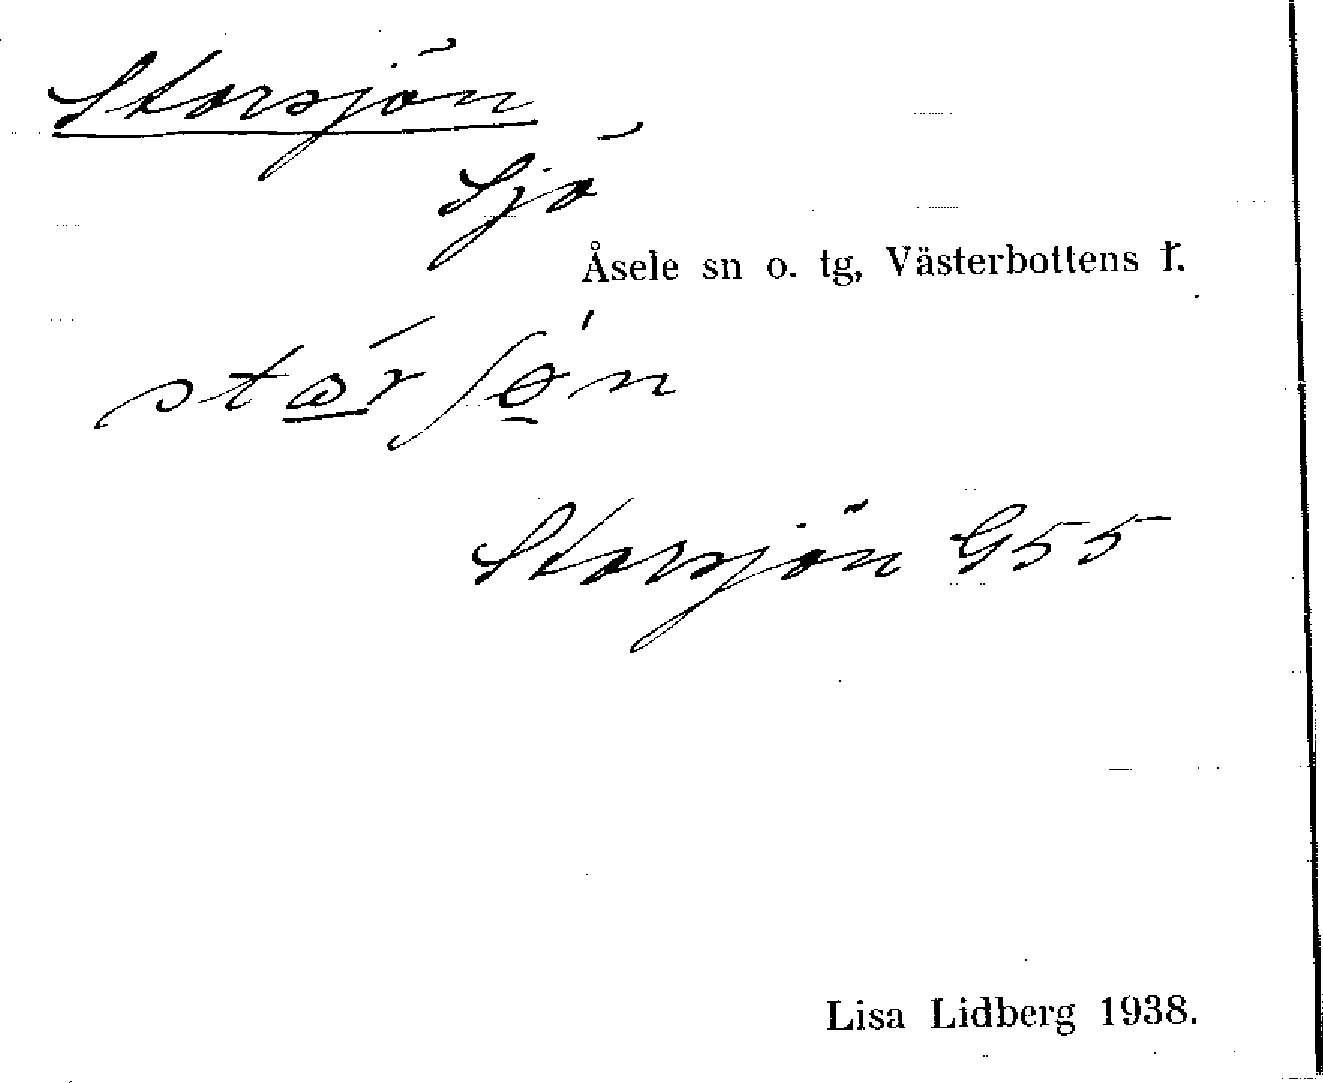 Storsjön
Sjö
Åsele sn o. tg, Västerbottens l.
Storsjön G55
Lisa Lidberg 1938.